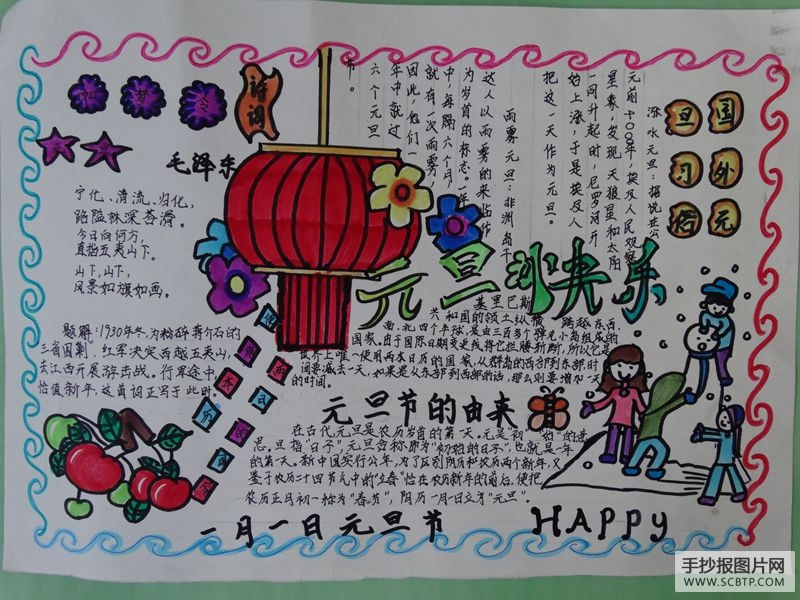 如梦令
诗词
元旦
毛泽东
宁化、清流、归化,
路隘林深苔滑。
今日向何方,
直指武夷山下。
山下,山下,
风景如旗如画。
题解:1930年冬,为粉碎蒋介石的
三省围剿,红军决定西越武夷山,
去江西开展游击战。行军途中,
恰值新年,这首词正写于此时。
国外元
旦习俗
涨水元旦:据说在公
元前1000年,埃及人民观察
星象,发现天狼星和太阳
一同升起时,尼罗河开
始上涨,于是埃及人
把这一天作为元旦。
雨雾元旦:非洲岛干
达人以雨雾的来临作
为岁首的标志。一年
中,每隔六个月,
就有一次雨雾
因此,他们一
年中就过
六个元旦
节。
元旦快乐
基里巴斯
共和国的领土纵横 跨越东西、
南、北四个半球,是由三百多个弹丸小岛组成的
国家。由于国际日期变更线将它拦腰斩断,所以它是
世界上唯一使用两本日历的国家,从群岛的西部到东部,时
间要减去一天,如果是从东部到西部的话,那么则要增加一天
的时间。
两本日历
元旦节的由来
在古代元旦是农历岁首的第一天。元是“初”“始”的意
思。旦指“日子”,元旦合称即为“初始的日子”,也就是一年
的第一天。新中国实行公年,为了区别阴历和农历两个新年,又
鉴于农历二十四节气中的“立春”恰在农历新年的前后,便把
农历正月初一称为“春节”,阳历一月一日立为“元旦”。
一月一日元旦节
HAPPY
手抄报图片网
WWW.SCBTP.COM